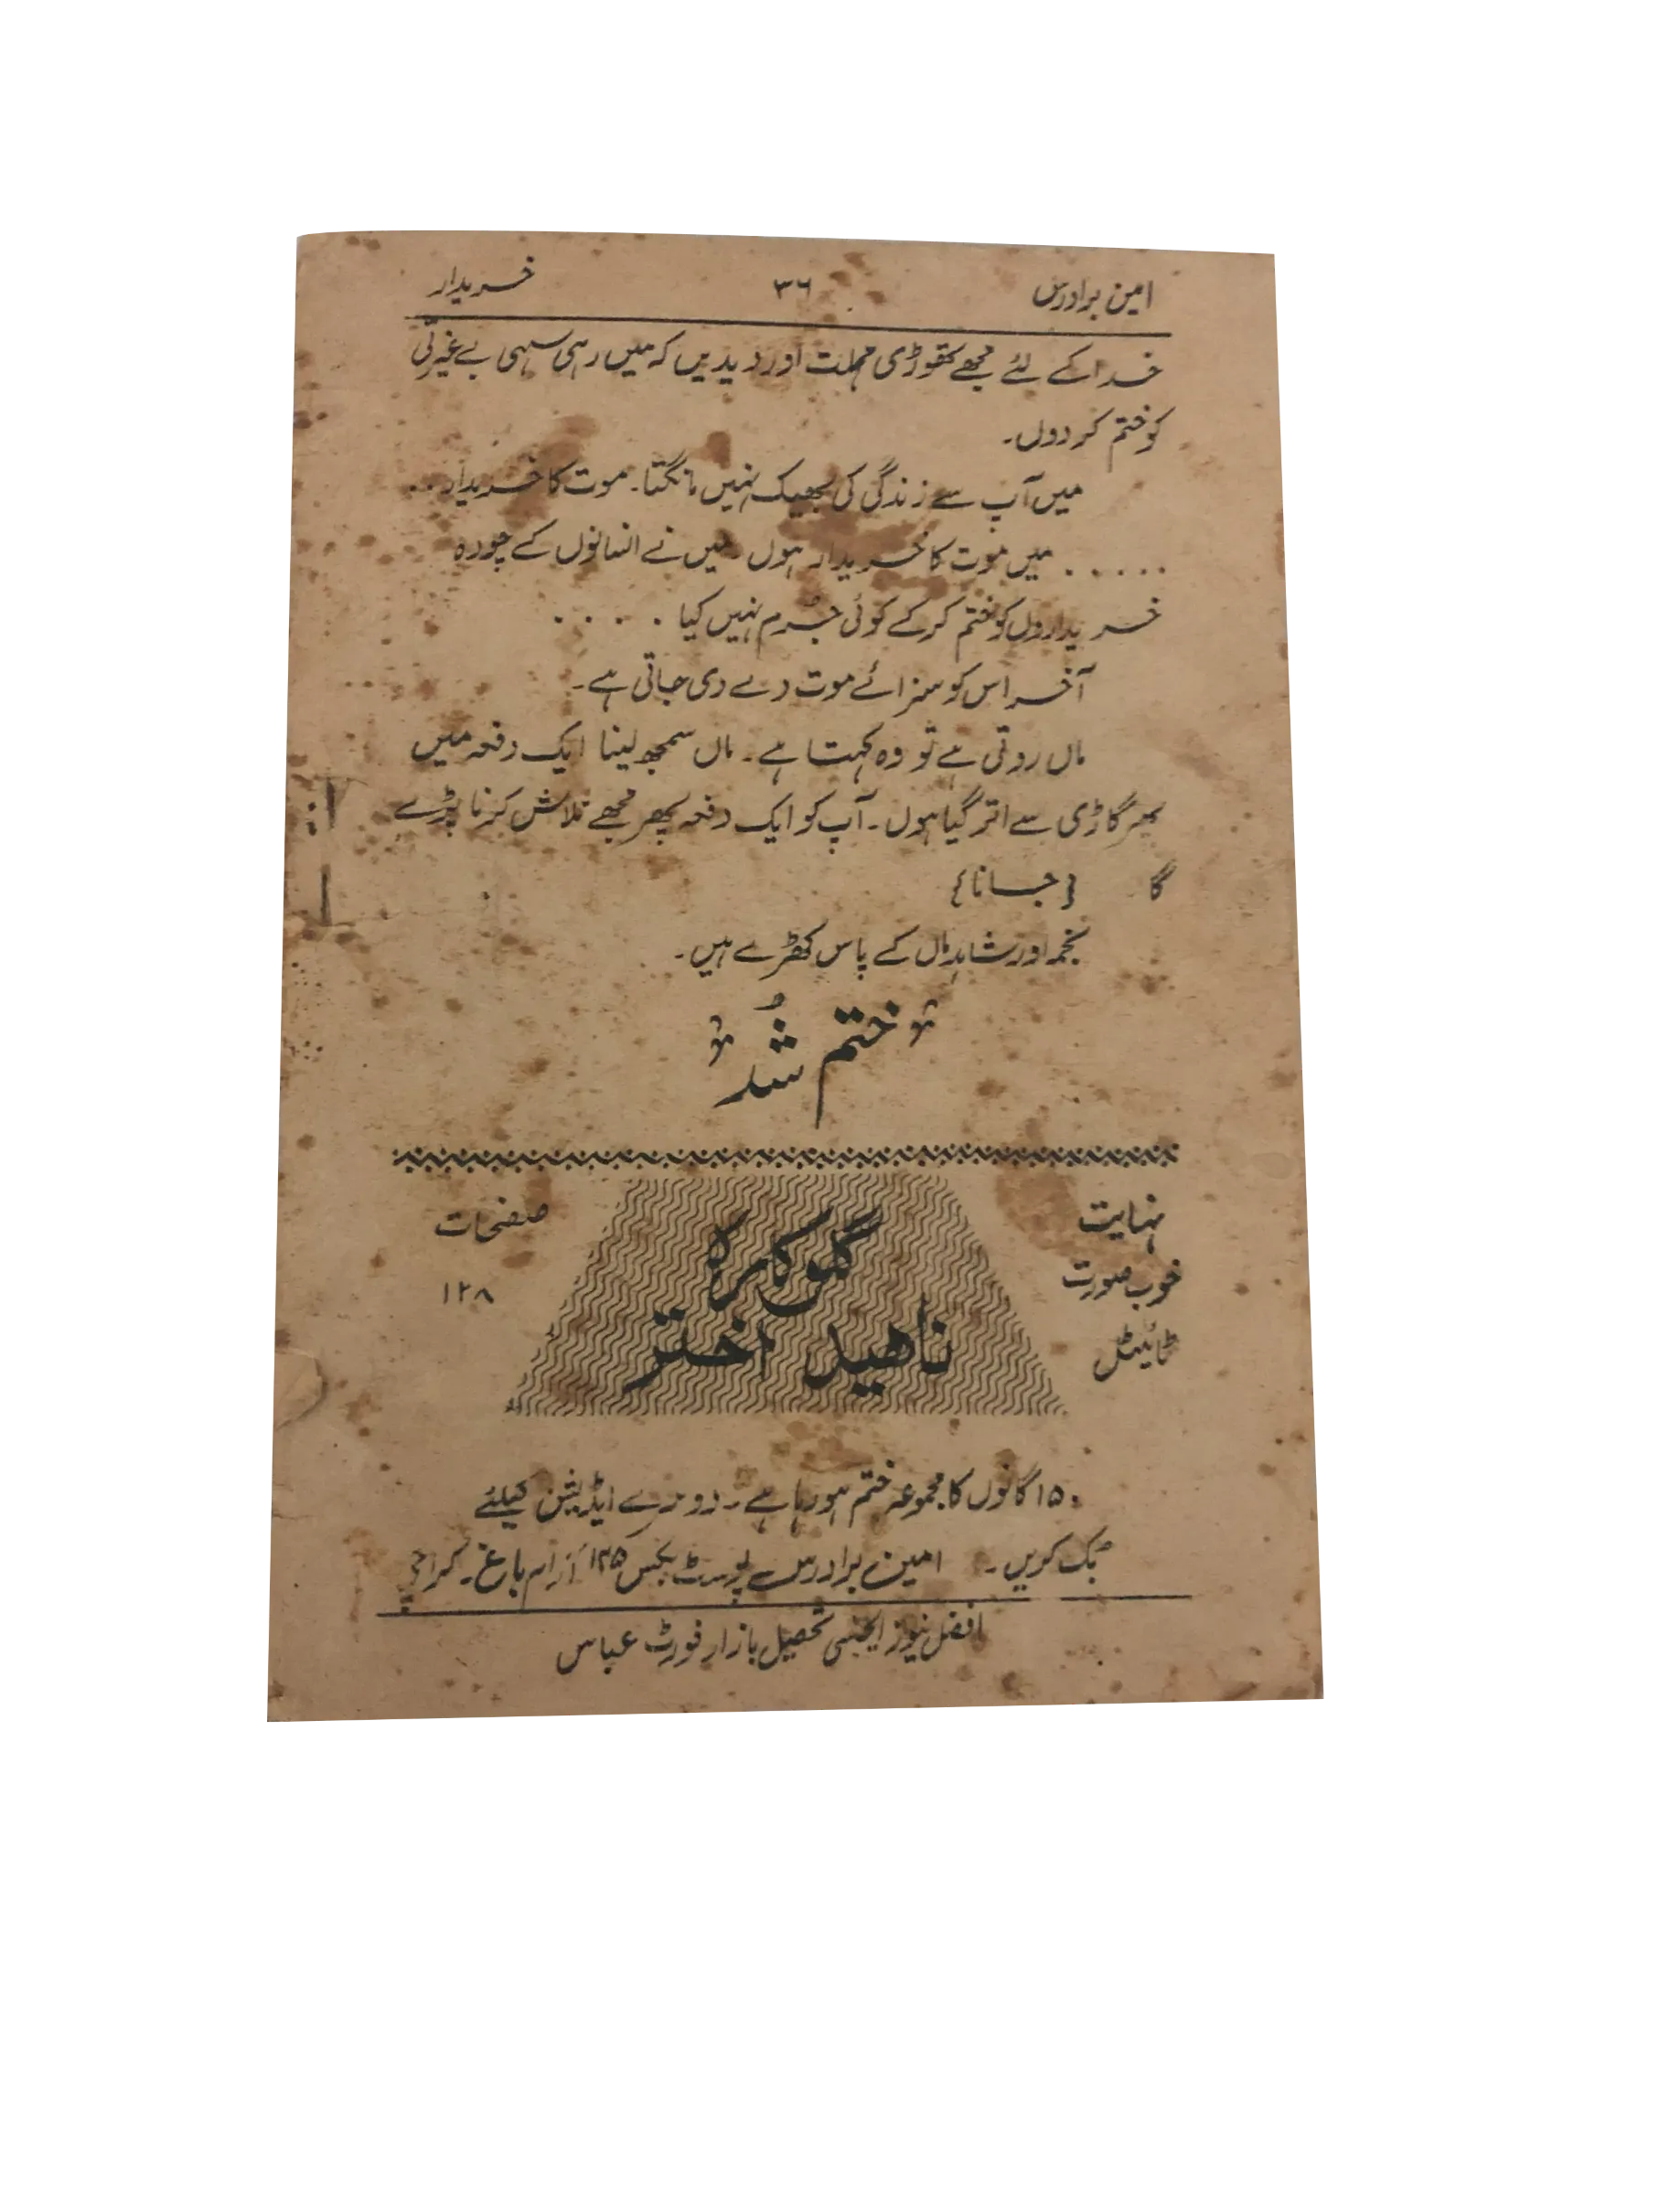 امین برادرس ۳۶ خریدار
خدا کے لئے مجھے تھوڑی مہلت اور دیدیں کہ میں رہی سہی بے غیرتی
کو ختم کر دوں۔
میں آپ سے زندگی کی بھیک نہیں مانگتا۔ موت کا خریدار ..
..... میں موت کا خریدار ہوں میں نے انسانوں کے چورہ
خریداروں کو ختم کرکے کوئی جُرم نہیں کیا ....
آخر اس کو سزائے موت دے دی جاتی ہے۔
ماں روتی ہے تو وہ کہتا ہے۔ ماں سمجھ لینا ایک دفعہ میں
پھر گاڑی سے اتر گیا ہوں۔ آپ کو ایک دفعہ پھر مجھے تلاش کرنا پڑے
گا {جانا}
نجمہ اور شاہد ماں کے پاس کھڑے ہیں۔
ختم شُد
نہایت
خوب صورت
ٹائیٹل
گلوکارہ
ناھید اختر
صفحات
۱۲۸
۱۵۰ گانوں کا مجموعہ ختم ہو رہا ہے۔ دوسرے ایڈیشن کیلئے
بک کریں۔ امین برادرس پوسٹ بکس ۱۲۵ آرام باغ۔ کراچی
افضل نیوز ایجنسی تحصیل بازار فورٹ عباس